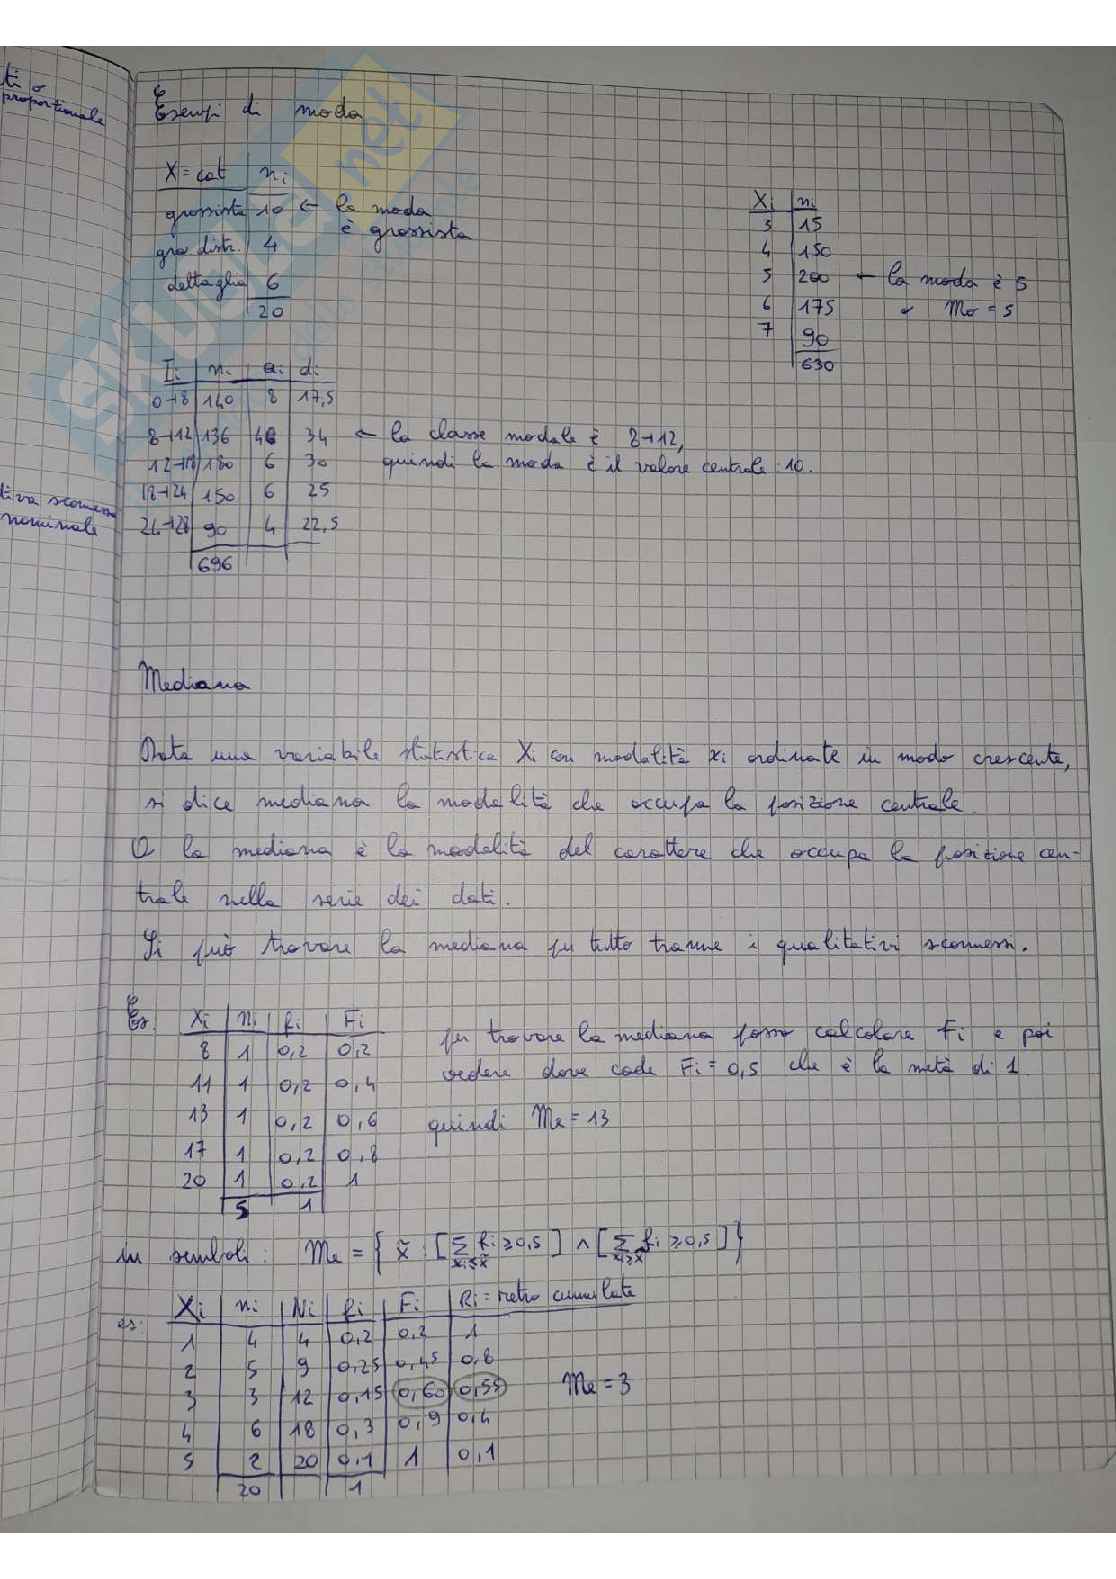 ti o
proporzionale
tiva sconnessa
nominale
Esempi di moda
X = cat | ni
grossista | 10 ← la moda
è grossista
gra distr. | 4
dettaglio | 6
20
Xi | ni
3 | 15
4 | 150
5 | 200 ← la moda è 5
6 | 175 o Mo = 5
7 | 90
630
Ii | ni | ai | di
0⊣8 | 140 | 8 | 17,5
8⊣12 | 136 | 4 | 34 ← la classe modale è 8⊣12,
12⊣18 | 180 | 6 | 30 quindi la moda è il valore centrale 10.
18⊣24 | 150 | 6 | 25
24⊣28 | 90 | 4 | 22,5
696
Mediana
Data una variabile statistica Xi con modalità xi ordinate in modo crescente,
si dice mediana la modalità che occupa la posizione centrale.
O la mediana è la modalità del carattere che occupa la posizione cen-
trale nella serie dei dati.
Si può trovare la mediana per tutto tranne i qualitativi sconnessi.
Es. Xi | ni | fi | Fi
8 | 1 | 0,2 | 0,2 per trovare la mediana posso calcolare Fi e poi
11 | 1 | 0,2 | 0,4 vedere dove cade Fi = 0,5 che è la metà di 1.
13 | 1 | 0,2 | 0,6 quindi Me = 13
17 | 1 | 0,2 | 0,8
20 | 1 | 0,2 | 1
5 | 1
in simboli: Me = { x̃ : [ Σ xi≤x̃ fi ≥ 0,5 ] ∧ [ Σ xi≥x̃ fi ≥ 0,5 ] }
es. Xi | ni | Ni | fi | Fi | Ri = retro cumulate
1 | 4 | 4 | 0,2 | 0,2 | 1
2 | 5 | 9 | 0,25 | 0,45 | 0,8
3 | 3 | 12 | 0,15 | 0,60 | 0,55 Me = 3
4 | 6 | 18 | 0,3 | 0,9 | 0,4
5 | 2 | 20 | 0,1 | 1 | 0,1
20 | 1